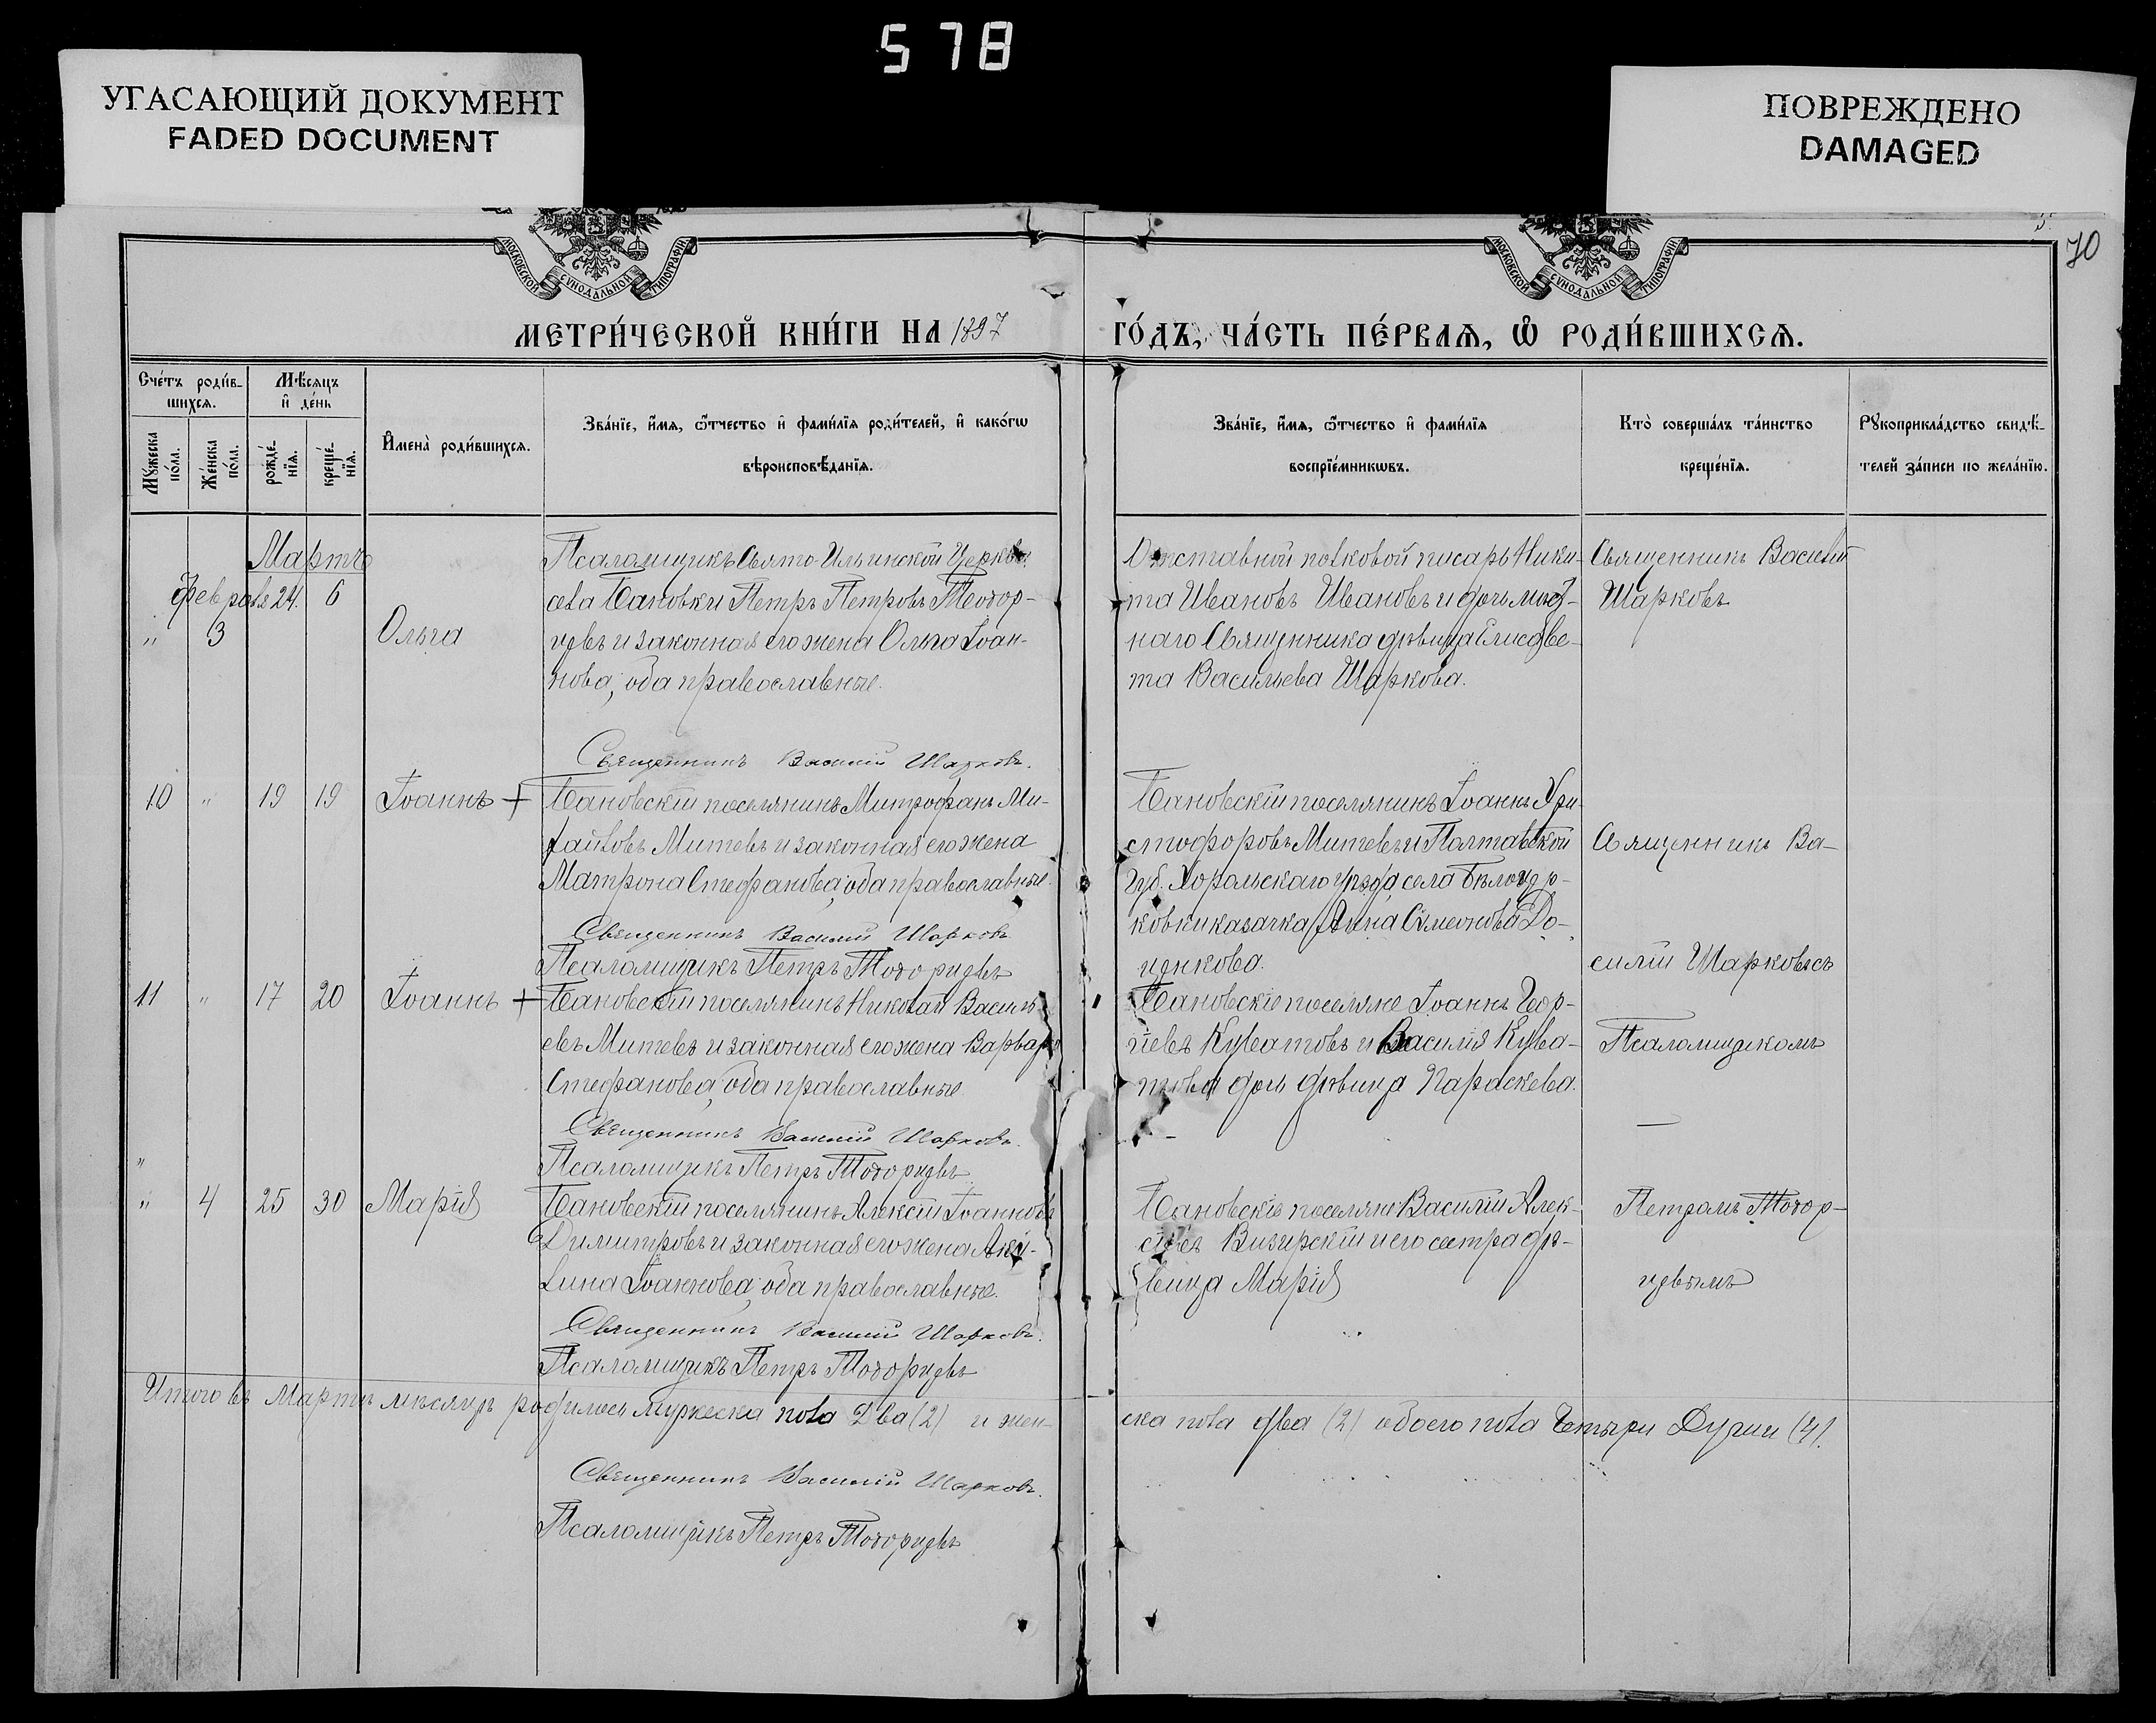 578
УГАСАЮЩИЙ ДОКУМЕНТ
FADED DOCUMENT
ПОВРЕЖДЕНО
DAMAGED
МОСКОВСКОЙ СУНОДАЛЬНОЙ ТИПОГРАФІИ
МОСКОВСКОЙ СУНОДАЛЬНОЙ ТИПОГРАФІИ
70
МЕТРИ́ЧЕСКОЙ КНИ́ГИ НА 1897
ГО́ДЪ, ЧА́СТЬ ПЕ́РВАѦ, Ѿ РОДИ́ВШИХСѦ.
Сче́тъ роди́в-
шихсѧ.
Мѣ́сѧцъ
и҆ де́нь
Мꙋ́жеска
по́ла.
Же́нска
по́ла.
рожде́-
нїѧ.
креще́-
нїѧ.
И҆мена̀ роди́вшихсѧ.
Зва́нїе, и҆́мѧ, ѻ҆́тчество и҆ фами́лїѧ роди́телей, и҆ како́гѡ
вѣроисповѣ́данїѧ.
Зва́нїе, и҆́мѧ, ѻ҆́тчество и҆ фами́лїѧ
воспрїе́мникѡвъ.
Кто̀ соверша́лъ та́инство
креще́нїѧ.
Рꙋкоприкла́дство свидѣ́-
телей за́писи по жела́нїю.
Мартъ
Феврала 24. 6
" 3 Ольга
Псаломщикъ Свято-Ильинской Церкви
села Бановки Петръ Петровъ Тодор-
цевъ и законная его жена Ольга Іоан-
нова, оба православные.
Священникъ Василій Шарковъ.
Отставной полковой писарь Ники-
та Ивановъ Ивановъ и дочь мѣст-
наго Священника дѣвица Елисаве-
та Васильева Шаркова.
Священникъ Василій
Шарковъ
10 " 19 19 Іоаннъ +
Бановскій поселянинъ Митрофанъ Ми-
хайловъ Митевъ и законная его жена
Матрона Стефанова, оба православные.
Священникъ Василій Шарковъ
Псаломщикъ Петръ Тодорцевъ
Бановскій поселянинъ Іоаннъ Хри-
стофоровъ Митевъ и Полтавской
Губ. Хорольскаго уѣзда села Бѣлоцер-
ковки казачка Анна Симеонова До-
ценкова.
Священникъ Ва-
силій Шарковъ съ
11 " 17 20 Іоаннъ +
Бановскій поселянинъ Николай Василь-
евъ Митевъ и законная его жена Варвара
Стефанова, оба православные
Священникъ Василій Шарковъ.
Псаломщикъ Петръ Тодорцевъ
Бановскіе поселяне Іоаннъ Геор-
гіевъ и Василія
дочь дѣвица Параскева.
Псаломщикомъ
"
" 4 25 30 Марія
Бановскій поселянинъ Алексій Іоанновъ
Димитровъ и законная его жена Аки-
лина Іоаннова, оба православные.
Священникъ Василій Шарковъ.
Псаломщикъ Петръ Тодорцевъ
Бановскіе поселяне Василій Алек-
сіевъ Визирскій и его сестра дѣ-
вица Марія
Петромъ Тодор-
цевымъ
Итого въ Мартѣ мѣсяцѣ родилось мужеска пола Два (2) и жен-
ска пола два (2) обоего пола Четыри Души (4).
Священникъ Василій Шарковъ.
Псаломщикъ Петръ Тодорцевъ